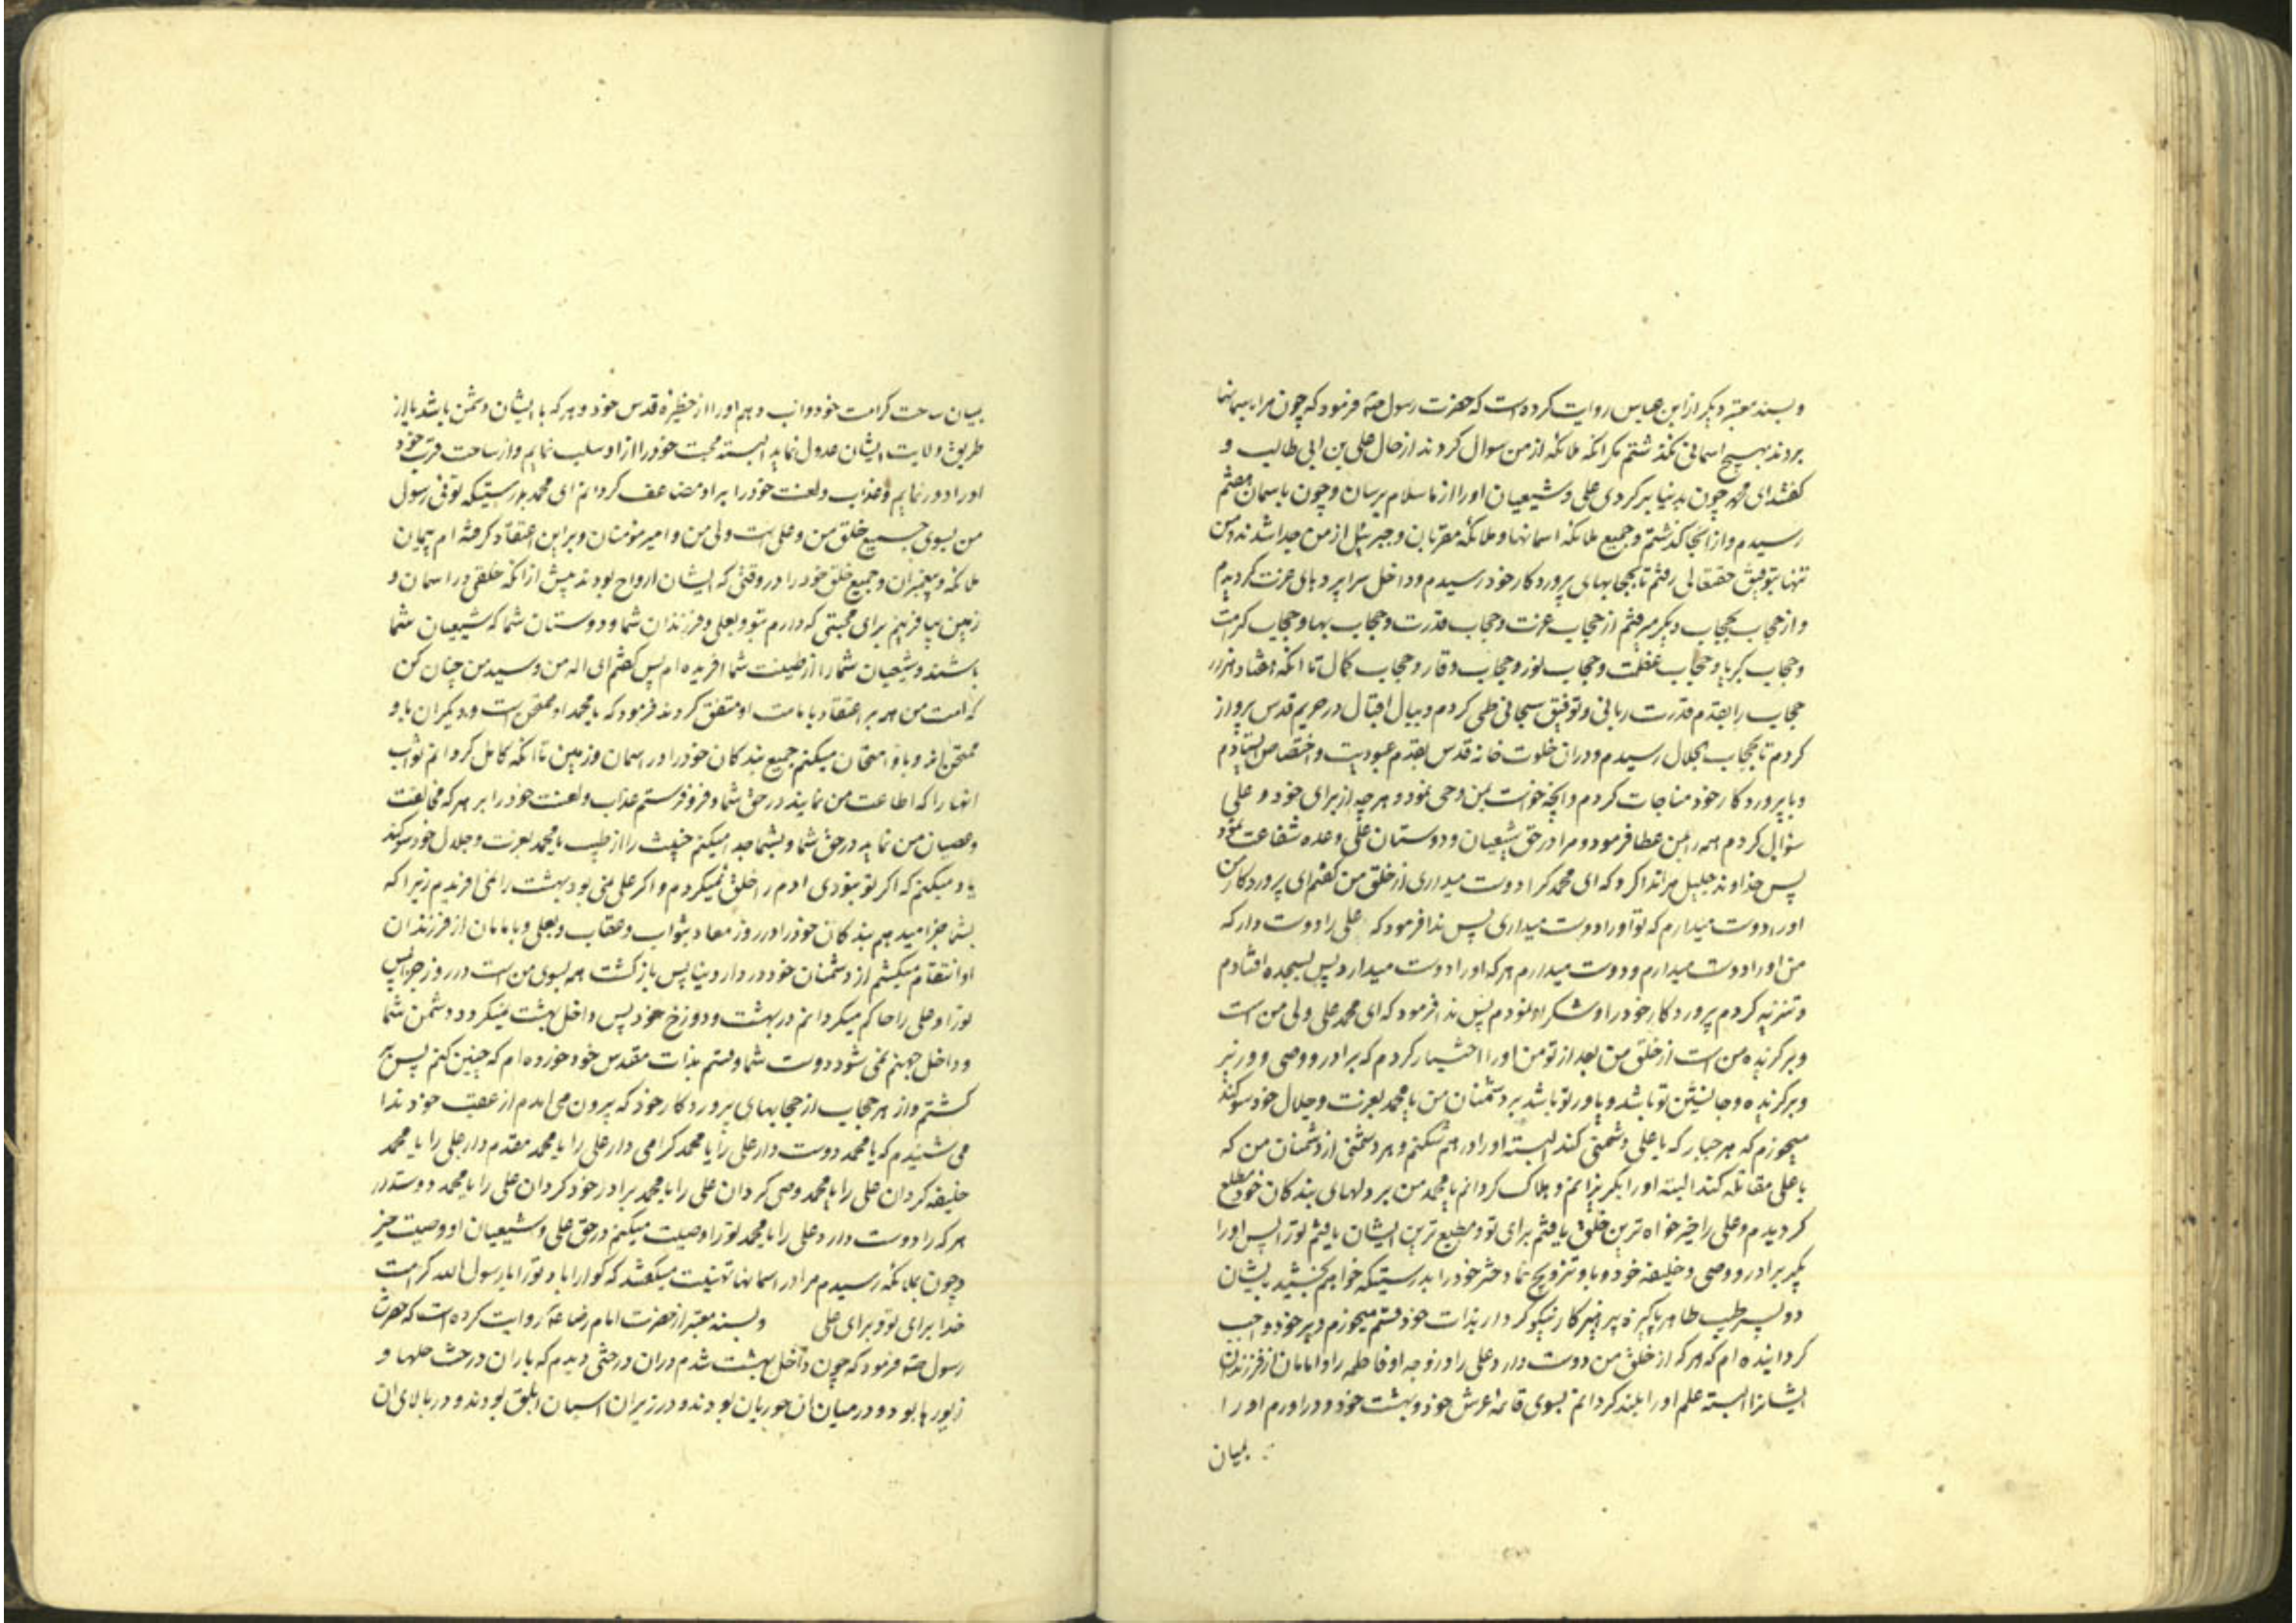 و بسند معتبر دیکر از ابن عباس روایت کرده است که حضرت رسول صه فرمود که چون مرا باسمانها
بردند بهیچ اسمانی نکذشتم مکر انکه ملائکه از من سوال کردند از حال علی بن ابی طالب و
کفتند ای محمد چون بدنیا برکردی علی و شیعیان او را از ما سلام برسان و چون باسمان هفتم
رسیدم و از انجا کذشتم و جمیع ملائکه اسمانها و ملائکه مقربان و جبرئیل از من جدا شدند و من
تنها بتوفیق حقتعالی رفتم تا بحجابهای پروردکار خود رسیدم و داخل سراپردهای عزت کردیدم
و از حجاب بحجاب دیکر میرفتم از حجاب عزت و حجاب قدرت و حجاب بها و حجاب کرامت
و حجاب کبریا و حجاب عظمت و حجاب نور و حجاب وقار و حجاب کمال تا انکه هفتاد هزار
حجاب را بقدم قدرت ربانی و توفیق سبحانی طی کردم و ببال اقبال در حریم قدس پرواز
کردم تا بحجاب جلال رسیدم و دران خلوت خانه قدس بقدم عبودیت و اختصاص ایستادم
و با پروردکار خود مناجات کردم و انچه خواست بمن وحی نمود و هر چه از برای خود و علی
سؤال کردم همه را بمن عطا فرمود و مرا در حق شیعیان و دوستان علی وعده شفاعت نمود
پس خداوند جلیل مرا ندا کرد که ای محمد کرا دوست میداری از خلق من کفتم ای پروردکار من
او را دوست میدارم که تو او را دوست میداری پس ندا فرمود که علی را دوست دار که
من او را دوست میدارم و دوست میدارم هر که او را دوست میدارد پس بسجده افتادم
و تنزیه کردم پروردکار خود را و شکر او نمودم پس ندا فرمود که ای محمد علی ولی من است
و برکزیده من است از خلق من بعد از تو من او را اختیار کردم که برادر و وصی و وزیر
و برکزیده و جانشین تو باشد و یاور تو باشد بر دشمنان من یا محمد بعزت و جلال خود سوکند
میخورم که هر جبار که با علی دشمنی کند البته او را در هم شکنم و هر دشمنی از دشمنان من که
با علی مقاتله کند البته او را بکریزانم و هلاک کردانم یا محمد من بر دلهای بندکان خود مطلع
کردیدم و علی را خیر خواه ترین خلق یافتم برای تو و مطیع ترین ایشان یافتم تو را پس او را
بکیر برادر و وصی و خلیفه خود و باو تزویج نما دختر خود را بدرستیکه خواهم بخشید بایشان
دو پسر طیب طاهر پاکیزه پرهیزکار نیکو کردار بذات خود قسم میخورم و بر خود واجب
کردانیده ام که هر که از خلق من دوست دارد علی را و زوجه او فاطمه را و امامان از فرزندان
ایشانرا البته علم او را بلند کردانم بسوی قائمه عرش خود و بهشت خود و دراورم او را
بمیان
بمیان ساحت کرامت خود و اب دهم او را از حظیره قدس خود و هر که با ایشان دشمن باشد یا از
طریق ولایت ایشان عدول نماید البسته محبت خود را از او سلب نمایم و از ساحت قرب خود
او را دور نمایم و عذاب و لعنت خود را بر او مضاعف کردانم ای محمد بدرستیکه توئی رسول
من بسوی جمیع خلق من و علی است ولی من و امیر مؤمنان و بر این اعتقاد کرفته ام پیمان
ملائکه و پیغمبران و جمیع خلق خود را در وقتی که ایشان ارواح بودند پیش از انکه خلقی در اسمان و
زمین بیافرینم برای محبتی که دارم بتو و بعلی و فرزندان شما و دوستان شما که شیعیان شما
باشند و شیعیان شما را از طینت شما افریده ام پس کفتم ای اله من و سید من چنان کن
که امت من همه بر اعتقاد بامامت او متفق کردند فرمود که یا محمد او ممتحن است و دیکران باو
ممتحن اند و باو امتحان میکنم جمیع بندکان خود را در اسمان و زمین تا انکه کامل کردانم ثواب
انها را که اطاعت من نمایند در حق شما و فرو فرستم عذاب و لعنت خود را بر هر که مخالفت
و عصیان من نماید در حق شما و بشما جدا میکنم خبیث را از طیب یا محمد بعزت و جلال خود سوکند
یاد میکنم که اکر تو نبودی ادم را خلق نمیکردم و اکر علی نمی بود بهشت را نمی افریدم زیرا که
بشما جزا میدهم بندکان خود را در روز معاد بثواب و عقاب و بعلی و بامامان از فرزندان
او انتقام میکشم از دشمنان خود در دار دنیا پس بازکشت همه بسوی من است در روز جزا پس
تو را و علی را حاکم میکردانم در بهشت و دوزخ خود پس داخل بهشت نمیکردد دشمن شما
و داخل جهنم نمی شود دوست شما و قسم بذات مقدس خود خورده ام که چنین کنم پس بر
کشتم و از هر حجاب از حجابهای پروردکار خود که بیرون می امدم از عقب خود ندا
می شنیدم که یا محمد دوست دار علی را یا محمد کرامی دار علی را یا محمد مقدم دار علی را یا محمد
خلیفه کردان علی را یا محمد وصی کردان علی را یا محمد برادر خود کردان علی را یا محمد دوست دار
هر که را دوست دارد علی را یا محمد تو را وصیت میکنم در حق علی و شیعیان او وصیت خیر
و چون بملائکه رسیدم مرا در اسمانها تهنیت میکفتند که کوارا باد تو را یا رسول الله کرامت
خدا برای تو و برای علی و بسند معتبر از حضرت امام رضا عه روایت کرده است که حضرت
رسول صه فرمود که چون داخل بهشت شدم دران درختی دیدم که بار ان درخت حلها و
زیورها بود و در میان ان حوریان بودند و در زیر ان اسبان ابلق بودند و در بالای ان